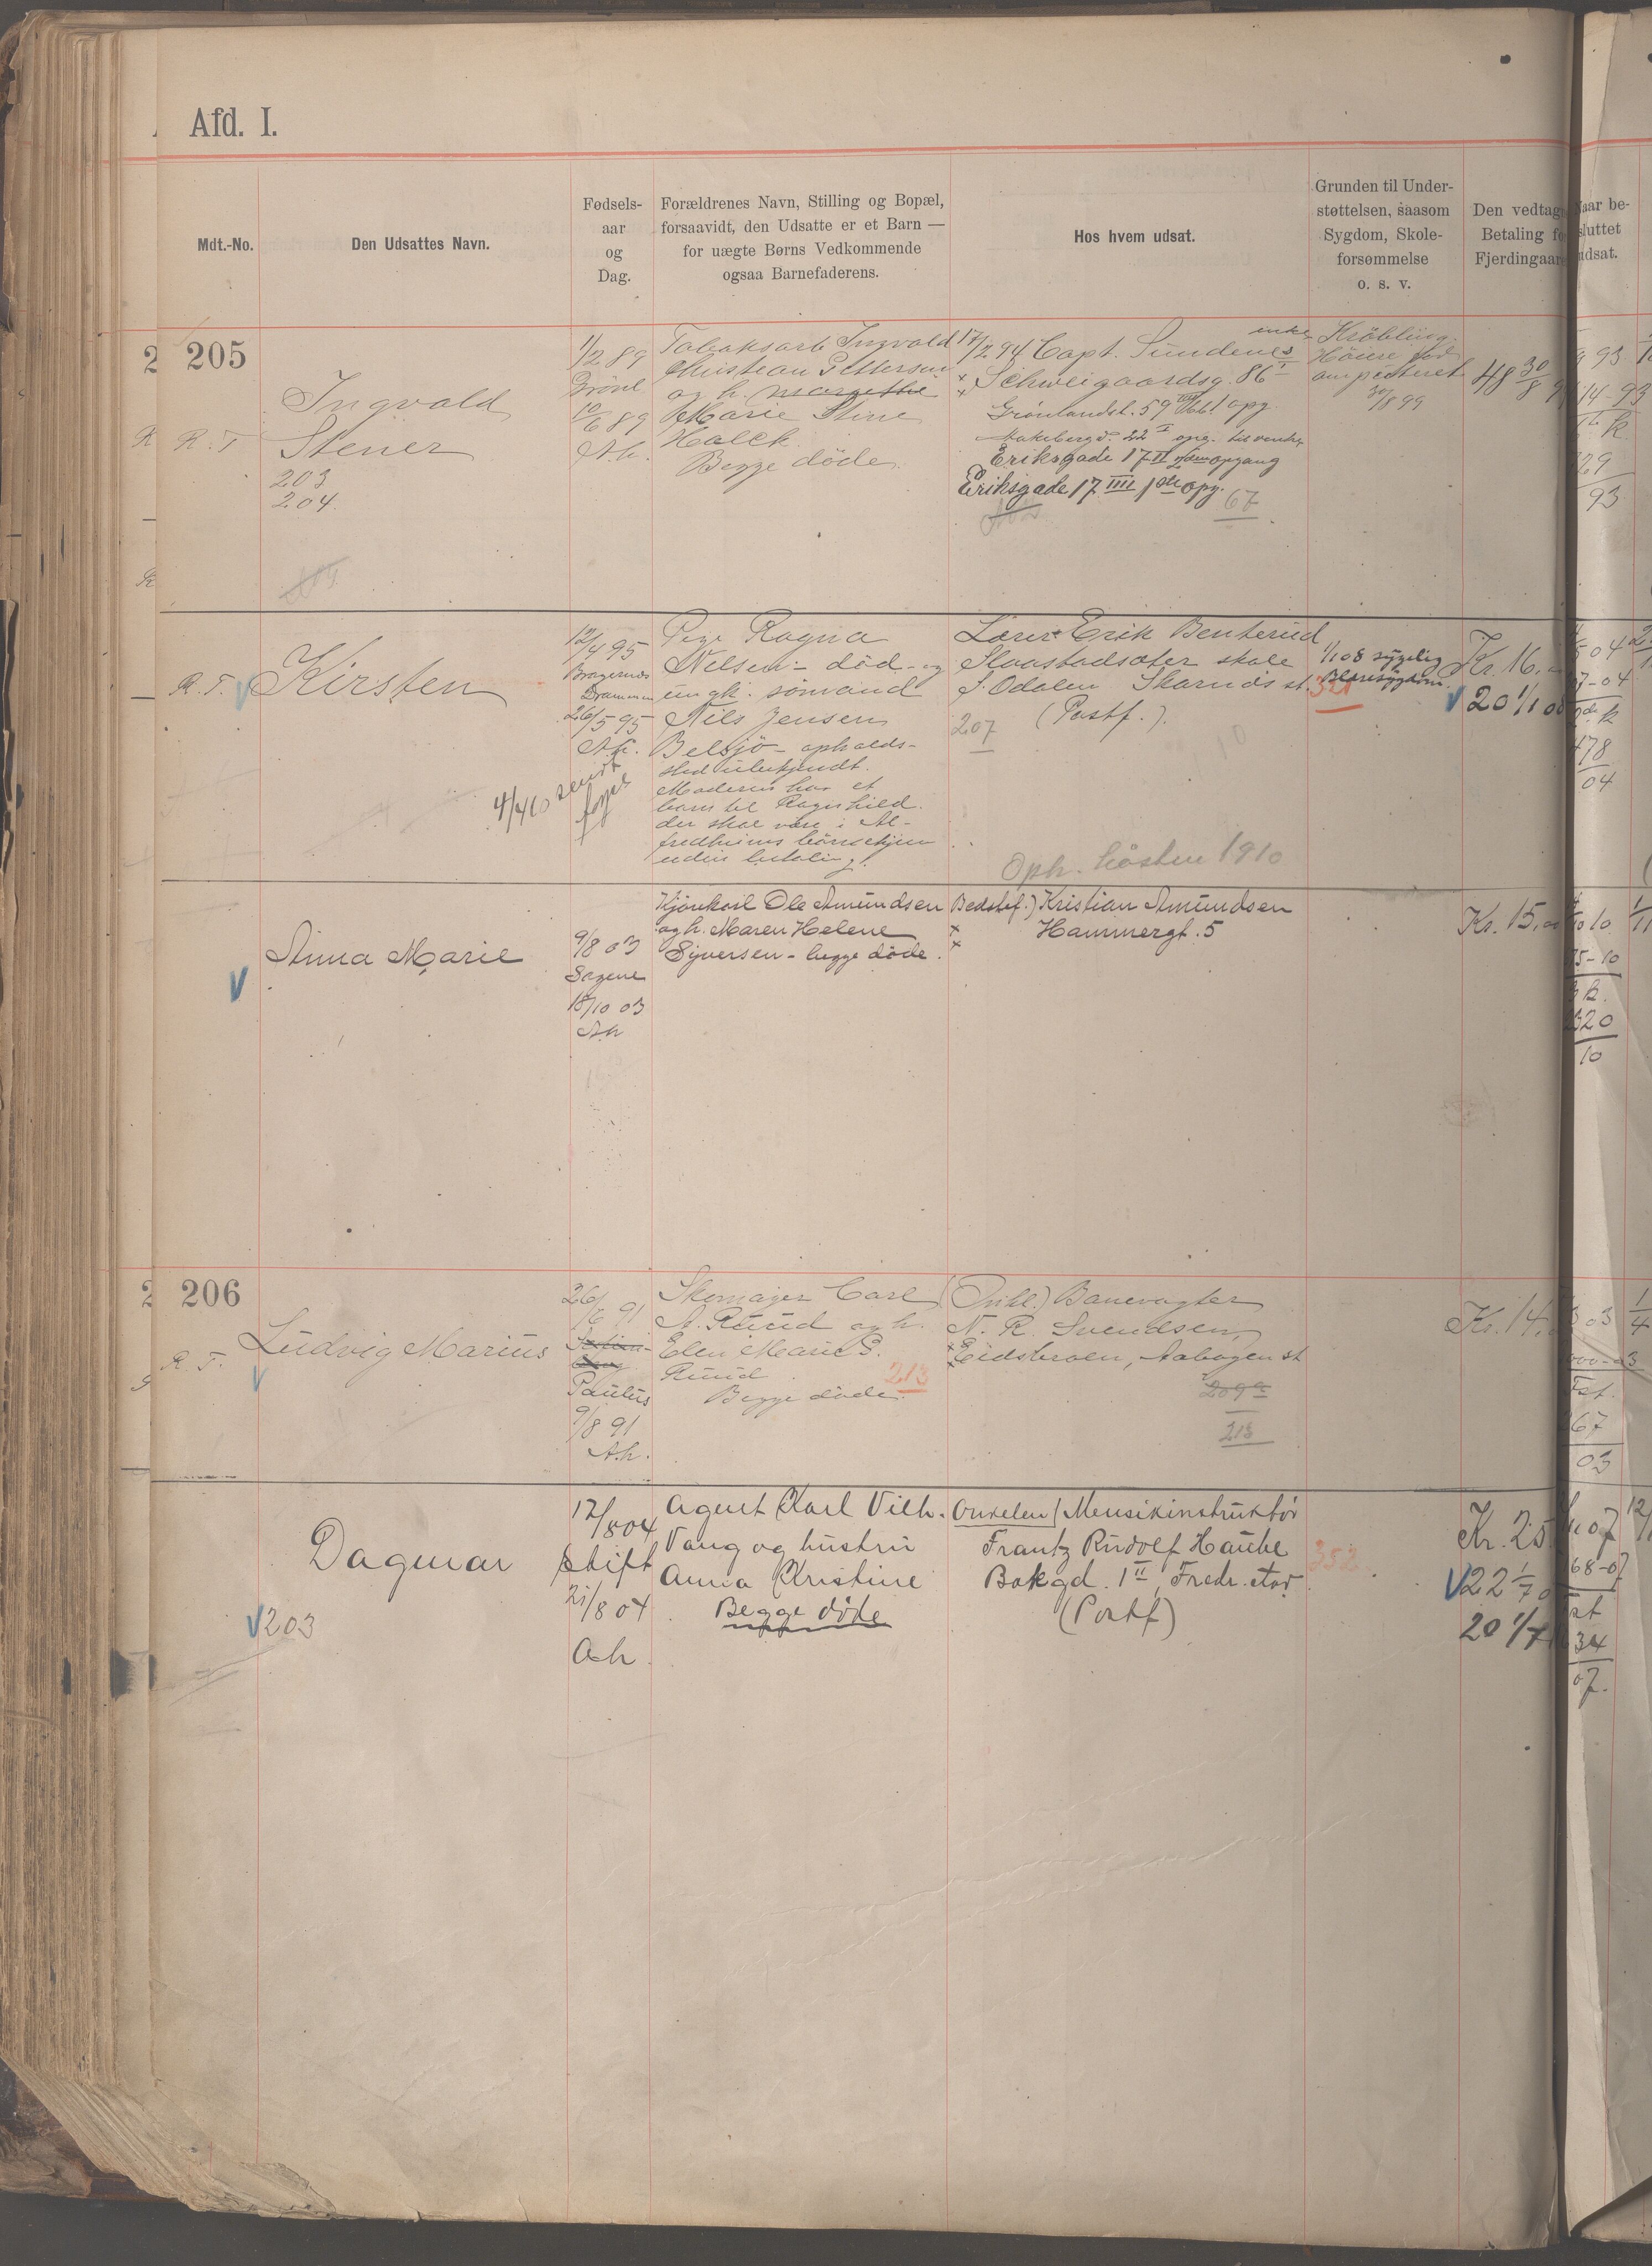 Afd. I.
Mdt.-No.
Den Udsattes Navn.
Fødsels-
aar
og
Dag.
Forældrenes Navn, Stilling og Bopæl,
forsaavidt, den Udsatte er et Barn —
for uægte Børns Vedkommende
ogsaa Barnefaderens.
Hos hvem udsat.
Grunden til Under-
støttelsen, saasom
Sygdom, Skole-
forsømmelse
o. s. v.
Den vedtag
Betaling fo
Fjerdingaar
Naar be-
sluttet
udsat.
205
R. T
Ingvald
Stener
203
204
1/2 89
Grönl
10/6 89
A.h.
Tobaksarb Ingvald
Christian Pettersen
og h. Margethe
Marie Stine
Holck.
Begge döde.
17/2 94 Capt. Sundenes enke
Schweigaardsg. 86 I
Grönlandsl. 59
Aakebergv. 22 I opg. til venstre
Eriksgade 17 II 2den opgang
Eriksgade 17 IIII 1ste opg.
67
Kröbling.
Höire fod
amputeret
30/8 99
48 30/8 9
9 93
14-93
k
29
93
R. T.
Kirsten
12/4 95
Bragernes
Drammen
26/5 95
A.h.
4/4 10 sendt
Pige Ragna
Nelsen - död - og
ungk. sömand
Nils Jensen
Belsjö - opholds-
sted ubekjendt.
Moderen har et
barn til Ragnhild.
der skal være i Al-
fredheims börnehjem
uden betaling.
Lærer Erik Benterud
Slaastadsæter skole
S. Odalen Skarnds st.
(Postf.).
207
321
Oph. hösten 1910
1/1 08 sygelig
Blæresygdom.
Kr. 16.
20 1/1 08
04
7-04
k
478
04
Anna Marie
9/8 03
Sagene
18/10 03
A.h
Kjörekarl Ole Amundsen
og h. Maren Helene
Syversen - begge döde.
Bedstef.) Kristian Amundsen
Hammergt. 5
Kr. 15.
10
5-10
k.
320
10
206
R. T.
Ludvig Marius
26/6 91
Paulus
9/8 91
A.h.
Skomager Carl
A. Ruud og h.
Elen Marie E.
Ruud
Begge döde.
213
Banevogter
N. R. Svendsen,
Eidsbroen, Aabogen st
209
213
Kr. 14.
03
67
03
1/4
Dagmar
203
17/8 04
Stift
21/8 04
A.h.
Agent Karl Vilh.
Vang og hustru
Anna Kristine
Begge döde
Onkelen) Musikinstruktör
Frantz Rudolf Haube
Bakgd. 1 II, Fredr. stad
(Postf)
352
Kr. 25
22 1/7 0
20 1/7
07
68-07
34
07.